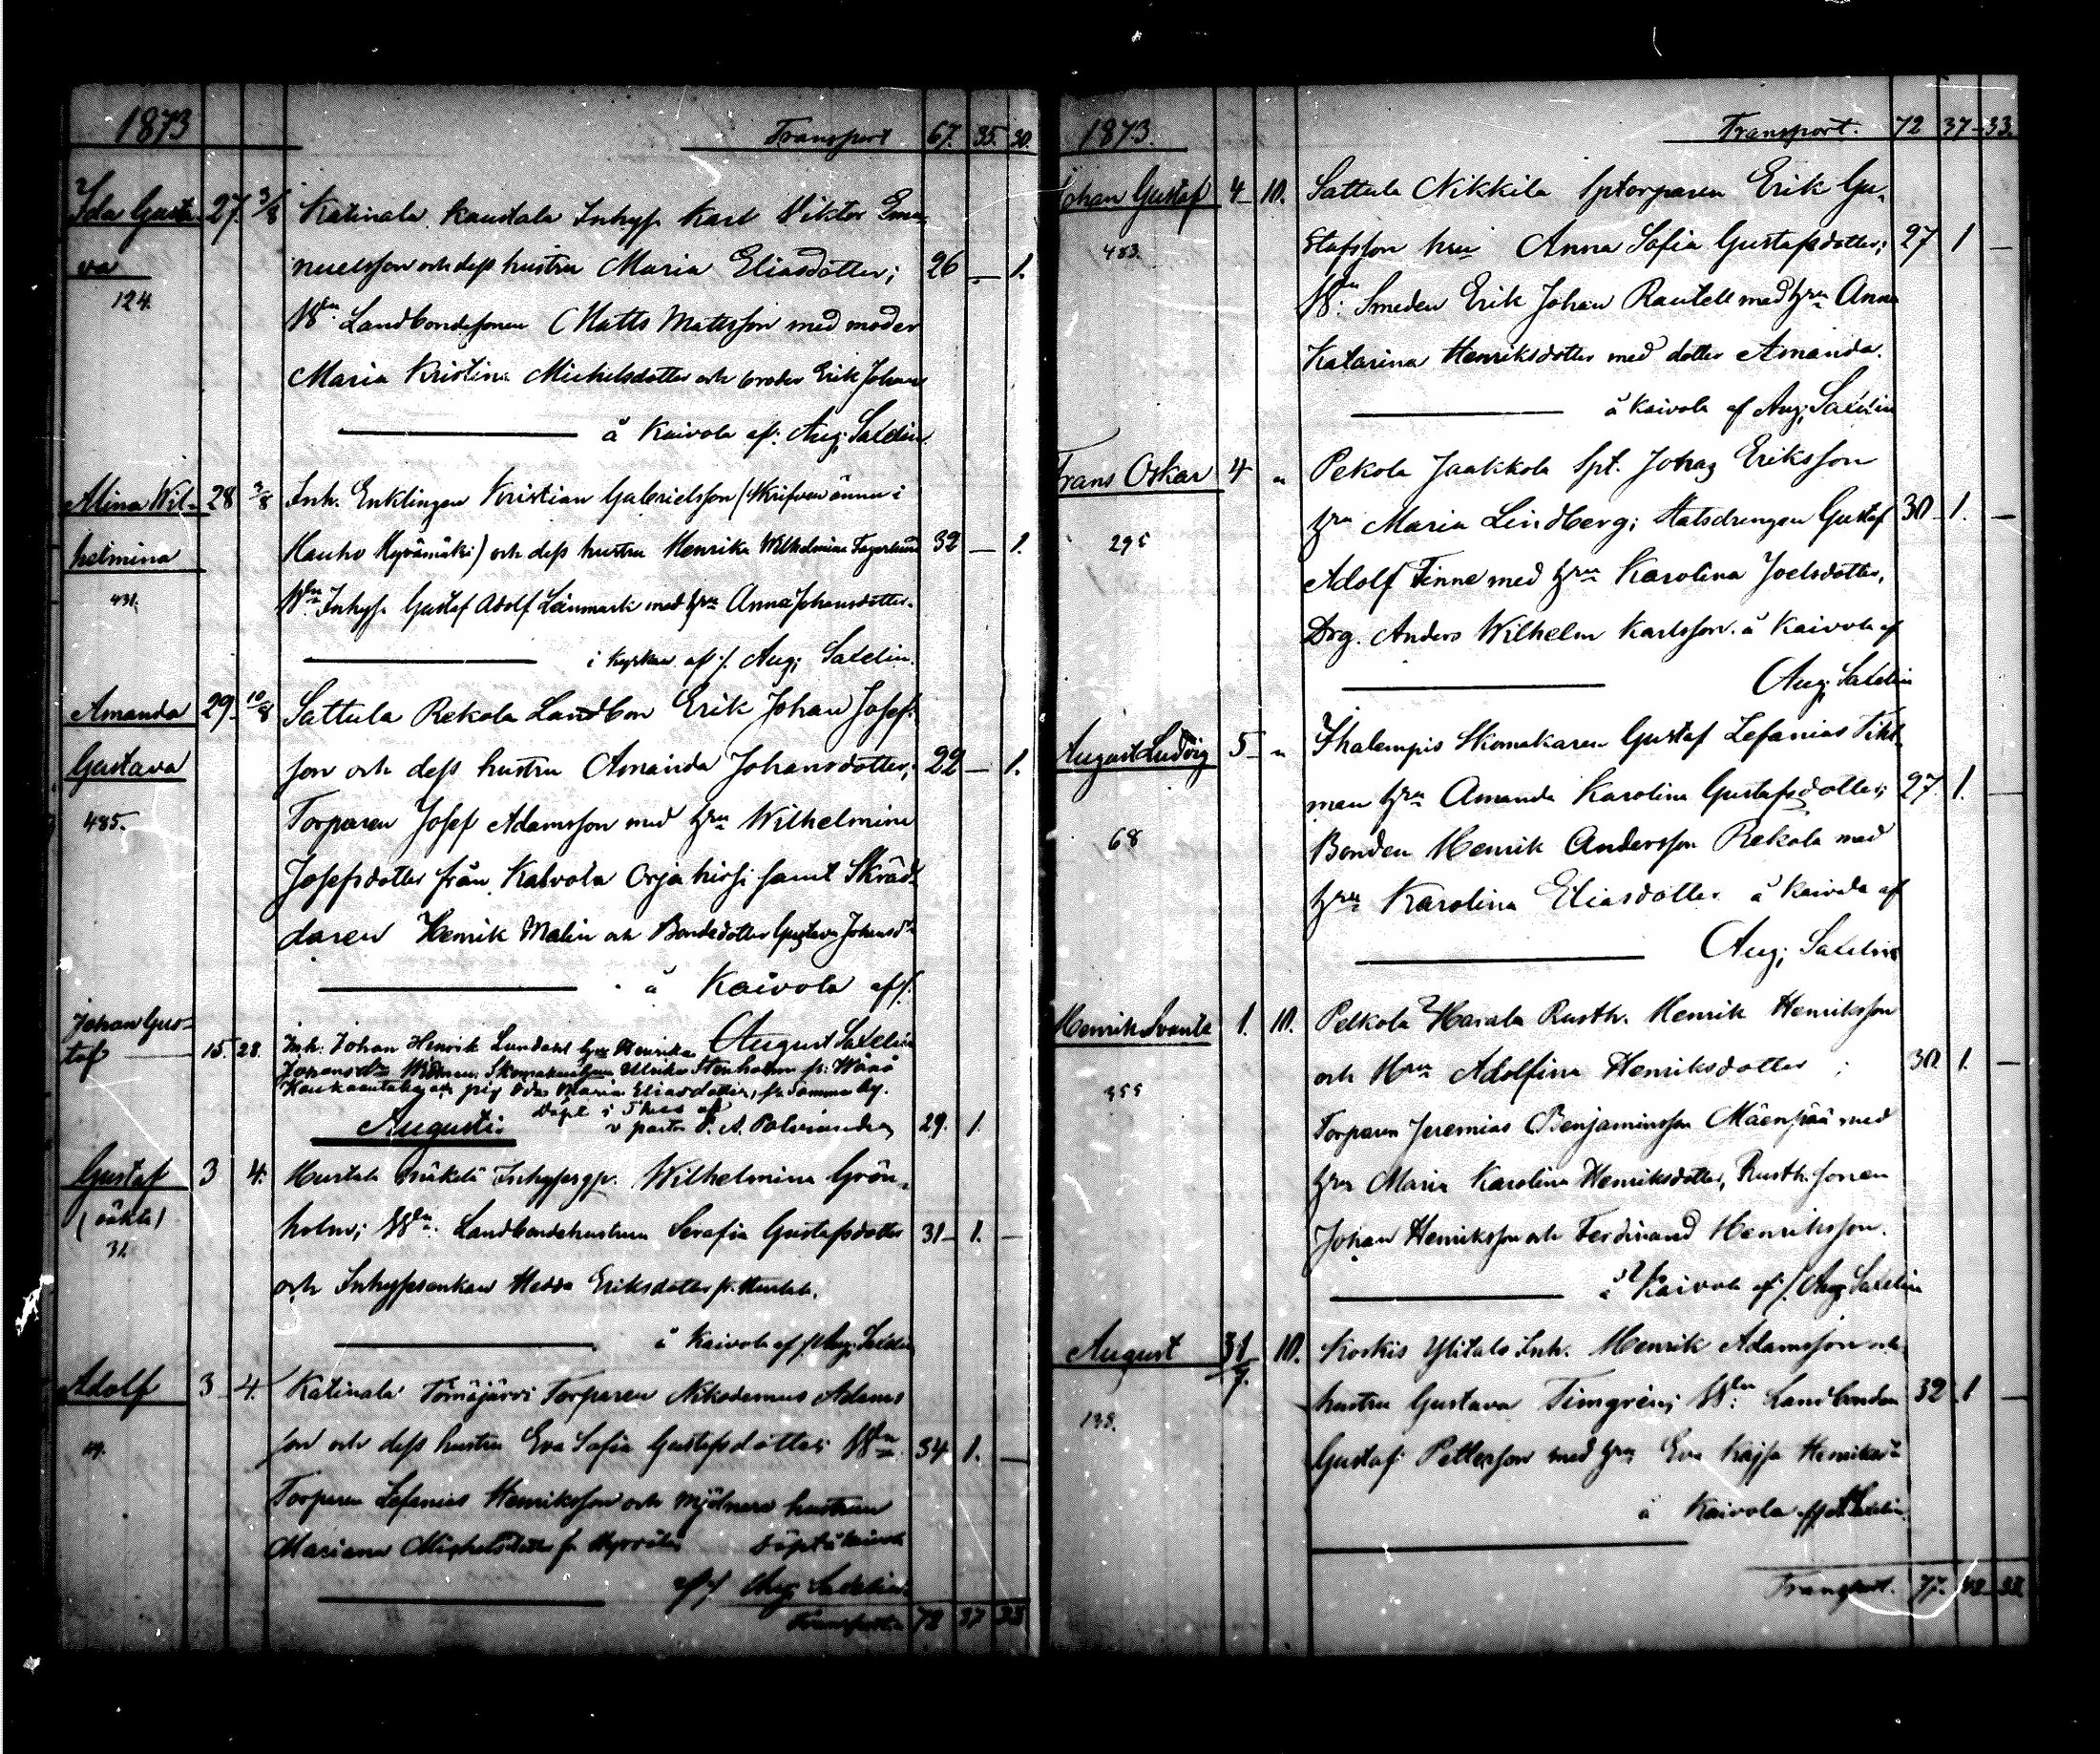 1873 Transport 67. 35. 30.
Ida Gusta 27. 3/8 Katinala Kaustala Inhyss. Karl Viktor Ema-
va nuelsson och dess hustru Maria Eliasdotter; 26 — 1.
124. Wn. Landbondesonen Matts Mattsson med moder
Maria Kristina Michelsdotter och broder Erik Johan
å Kaivola af: Aug; Saxelin.
Alina Wil- 28 3/8 Inh. Enklingen Kristian Gabrielsson (Skrifven ännu i
helmina Hauho Hyvämäki) och dess hustru Henrika Wilhelmina Fagerlund 32 — 1.
431. Wn Inhyss. Gustaf Adolf Leinmark med hru Anna Johansdotter.
i kyrkan af /. Aug; Saxelin.
Amanda 29. 10/8 Sattula Rekola Landbon Erik Johan Josef-
Gustava son och dess hustru Amanda Johansdotter; 22 — 1.
485. Torparen Josef Adamsson med hru Wilhelmina
Josefsdotter från Kalvola Orjahirsi samt Skräd-
daren Henrik Malin och Bondedotter Gustava Johansdr
å Kaivola af /.
August Saxelin
Johan Gus- 15. 28. Inh. Johan Henrik Lundahl hru Henrika
taf Johansdr Skomakarehru Ulrika Stenholm fr.
pig. Maria Eliasdotter, fr. samma by.
Augusti. döpt i af v. pastor 29. 1.
Gustaf 3 4. Hurtala Inhyssegp. Wilhelmina Grön-
(oäkta) holm; Wn. Landbondehustrun Serafia Gustafsdotter 31 1. —
31. och Inhyssenkan Hedda Eriksdotter fr. Hurtala.
å Kaivola af /. Aug; Saxelin
Adolf 3 4. Katinala Torparen Nikodemus Adams
son och dess hustru Eva Sofia Gustafsdotter; Wn 34 1. —
Torparen Zefanias Henriksson och Mjölnare hustrun
Mariana Michelsdotter fr. döpt å Kaivola
af /. Aug; Saxelin.
Transport. 72 37 33
1873. Transport. 72 37 33.
Johan Gustaf 4 10. Sattula Nikkila Sptorparen Erik Gu-
483. stafsson hru Anna Sofia Gustafsdotter; 27 1 —
Wn: Smeden Erik Johan Rautell med hru Anna
Katarina Henriksdotter med dotter Amanda.
å Kaivola af Aug; Saxelin
Frans Oskar 4 " Pekola Jaakkola Spt. Johan Eriksson
295 hru Maria Lindberg; Statsdrengen Gustaf 30 1. —
Adolf Finne med hru Karolina Joelsdotter,
Drg. Anders Wilhelm Karlsson. å Kaivola af
Aug; Saxelin
August Ludvig 5 " Ihalempis Skomakaren Gustaf Zefanias
man hru Amanda Karolina Gustafsdotter; 27. 1. —
68 Bonden Henrik Andersson Rekola med
hru Karolina Eliasdotter. å Kaivola af
Aug; Saxelin
Henrik Svante 1. 10. Pelkola Harala Rusth. Henrik Henriksson
355 och Hru Adolfina Henriksdotter; 30. 1. —
Torparen Jeremias Benjaminsson Mäenpää med
hru Maria Karolina Henriksdotter, Rusth. sonen
Johan Henriksson och Ferdinand Henriksson.
å Kaivola af /. Aug Saxelin
August 31/7. 10. Koskis Ylitalo Inh. Henrik Adamsson och
138. hustru Gustava Timgrén; Wn: Landbonden 32 1 —
Gustaf Petterson med hru Eva Kajsa Henriksdr
å Kaivola af Saxelin.
Transport. 77.